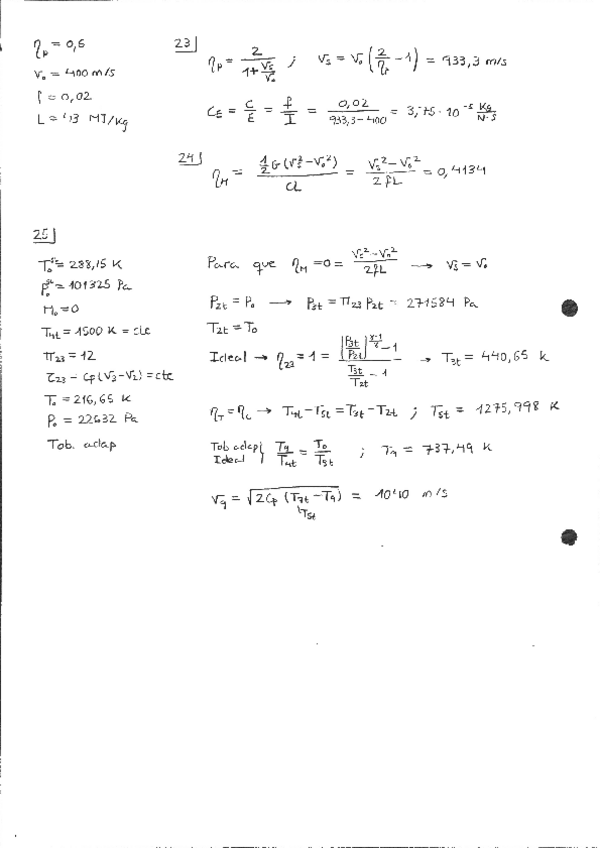 η_p = 0,6
V_0 = 400 m/s
f = 0,02
L = 43 MJ/kg
23|
η_p = 2 / (1 + V_s/V_0) ; V_s = V_0 (2/η_p - 1) = 933,3 m/s
C_E = C/E = f/I = 0,02 / (933,3-400) = 3,75 · 10^-5 Kg/(N·s)
24|
η_M = ½G(V_s²-V_0²) / CL = (V_s²-V_0²) / 2fL = 0,4134
25|
T_0 = 288,15 K
P_0 = 101325 Pa
M_0 = 0
T_4t = 1500 K = cte
π_23 = 12
τ_23 = Cp(V_3-V_2) = cte
T_0 = 216,65 K
P_0 = 22632 Pa
Tob. adap
Para que η_M = 0 = (V_s²-V_0²) / 2fL → V_s = V_0
P_2t = P_0 → P_3t = π_23 P_2t = 271584 Pa
T_2t = T_0
Ideal → η_23 = 1 = ((P_3t/P_2t)^((γ-1)/γ) - 1) / (T_3t/T_2t - 1) → T_3t = 440,65 K
η_T = η_C → T_4t - T_5t = T_3t - T_2t ; T_5t = 1275,998 K
Tob adap
Ideal } T_9/T_4t = T_0/T_3t ; T_9 = 737,49 K
V_9 = √(2Cp (T_9t - T_9)) = 1040 m/s
T_5t